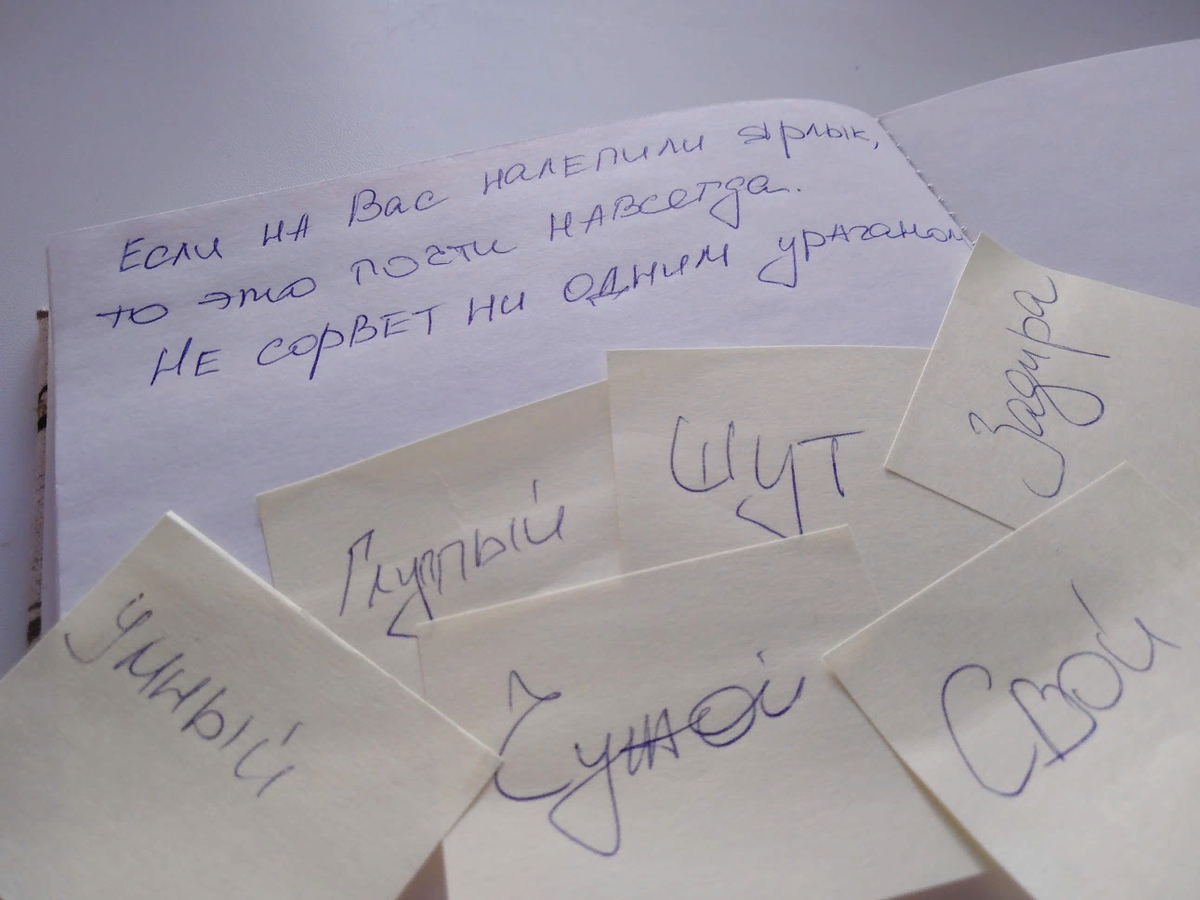 Если на Вас налепили ярлык,
то это почти навсегда.
Не сорвет ни одним ураганом
Задира
Шут
Глупый
Умный
Чужой
Свой